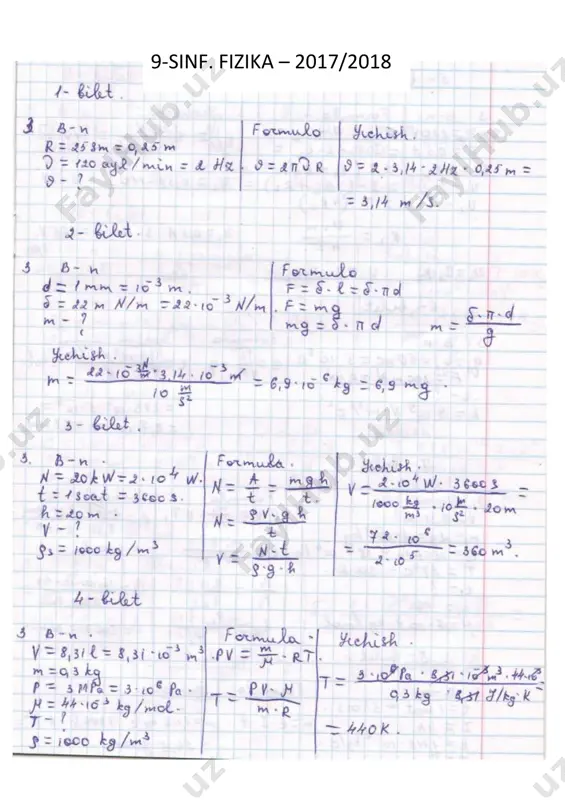 9-SINF. FIZIKA – 2017/2018
1- bilet.
3 B-n
R = 25 sm = 0,25 m
ϑ = 120 ayl/min = 2 Hz.
ϑ - ?
Formulo
ϑ = 2πϑR
Yechish.
ϑ = 2·3,14·2Hz·0,25m =
= 3,14 m/s.
2- bilet.
3 B-n
d = 1mm = 10⁻³ m.
б = 22 m N/m = 22·10⁻³ N/m.
m - ?
Formulo
F = б·l = б·πd
F = mg
mg = б·πd
m = б·π·d / g
Yechish.
m = 22·10⁻³ N/m · 3,14·10⁻³ m / 10 m/s² = 6,9·10⁻⁶ kg = 6,9 mg.
3- bilet.
3. B-n.
N = 20kW = 2·10⁴ W.
t = 1soat = 3600 s.
h = 20m.
V - ?
ρs = 1000 kg/m³
Formula.
N = A/t = mgh/t.
N = ρV·gh / t
V = N·t / ρ·g·h
Yechish.
V = 2·10⁴W · 3600s / 1000 kg/m³ · 10 m/s² · 20m =
= 72·10⁶ / 2·10⁵ = 360 m³.
4- bilet
3 B-n.
V = 8,31 l = 8,31·10⁻³ m³.
m = 0,3 kg
P = 3 MPa = 3·10⁶ Pa.
M = 44·10⁻³ kg/mol.
T - ?
ρ = 1000 kg/m³
Formula.
PV = m/M · RT.
T = PV·M / m·R
Yechish.
T = 3·10⁶ Pa · 8,31·10⁻³ m³ · 44·10⁻³ / 0,3 kg · 8,31 J/kg·K =
= 440K.
FaylHub.uz